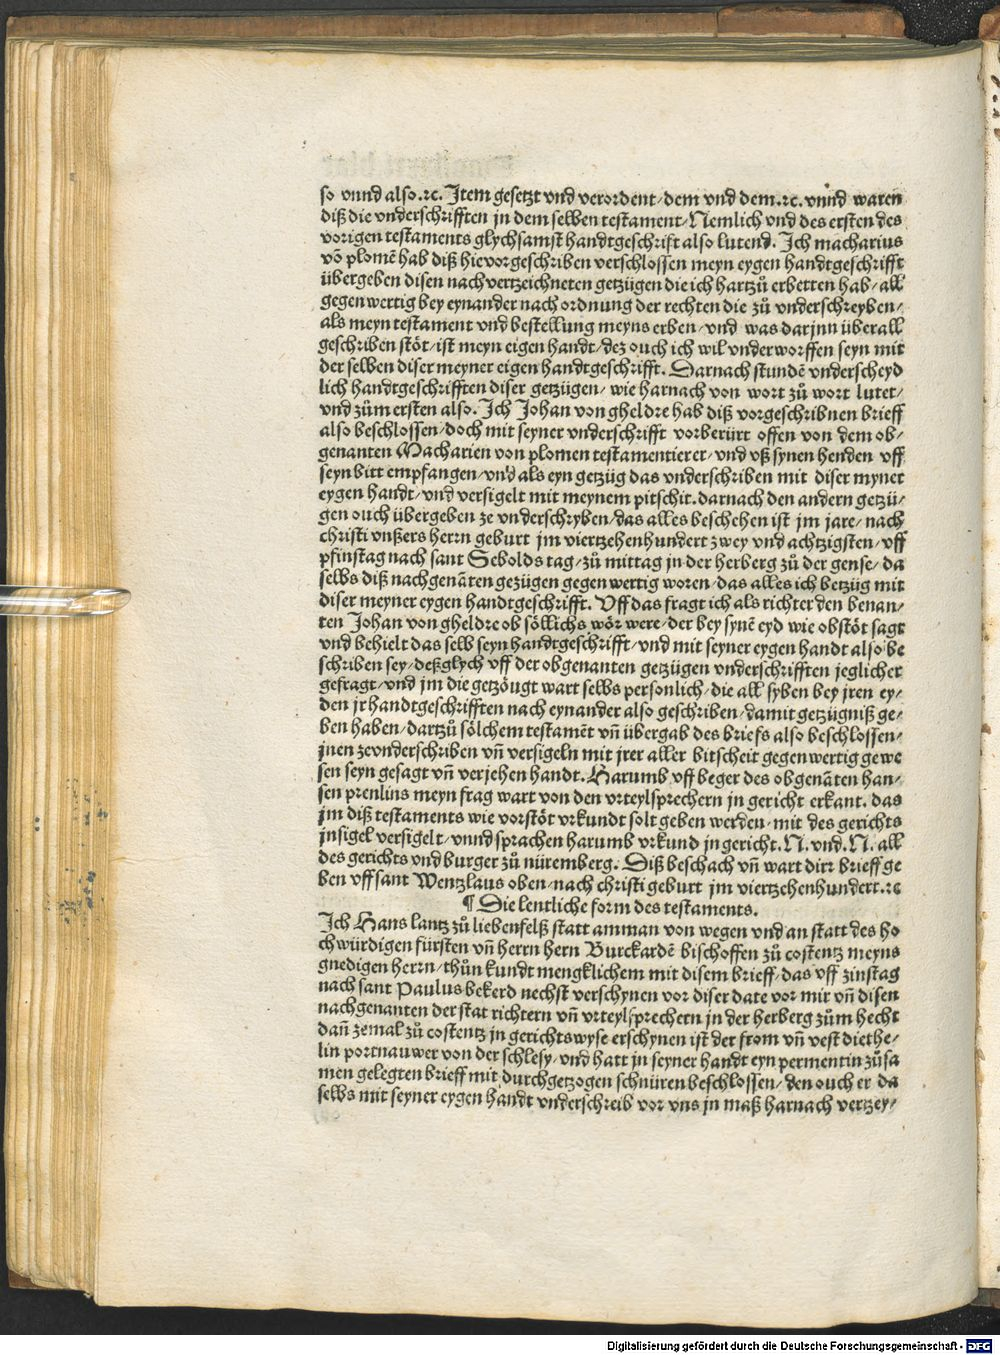 so vnnd also.⁊c. Item gesetzt vnd verordent/dem vnd dem.⁊c. vnnd waren
diß die vnderschrifften jn dem selben testament/Nemlich vnd des ersten des
vorigen testaments glychsamst handtgeschrift also lutend. Ich macharius
võ plomẽ hab diß hievorgeschriben verschlossen meyn eygen handtgeschrifft
übergeben disen nachvertzeichneten getzügen die ich hartzů erbetten hab/all
gegenwertig bey eynander nach ordnung der rechten die zů vnderschreyben/
als meyn testament vnd bestellung meyns erben/vnd was darjnn überall
geschriben stöt/ist meyn eigen handt/dez ouch ich wil vnderworffen seyn mit
der selben diser meyner eigen handtgeschrifft. Darnach stundẽ vnderscheyd
lich handtgeschrifften diser getzügen/wie harnach von wort zů wort lutet/
vnd zům ersten also. Ich Johan von gheldre hab diß vorgeschribnen brieff
also beschlossen/doch mit seyner vnderschrifft vorberürt offen von dem ob/
genanten Macharien von plomen testamentierer/vnd vß synen henden vff
seyn bitt empfangen/vnd als eyn getzüg das vnderschriben mit diser myner
eygen handt/vnd versigelt mit meynem pitschit.darnach den andern getzü/
gen ouch übergeben ze vnderschryben/das alles beschehen ist jm jare/nach
christi vnßers herrn geburt jm viertzehenhundert zwey vnd achtzigsten/vff
pfinstag nach sant Sebolds tag/zů mittag jn der herberg zů der gense/da
selbs diß nachgenãten gezügen gegenwertig woren/das alles ich betzüg mit
diser meyner eygen handtgeschrifft. Vff das fragt ich als richter den benan/
ten Johan von gheldre ob söllichs wör were/der bey synẽ eyd wie obstöt sagt
vnd behielt das selb seyn handtgeschrifft/vnd mit seyner eygen handt also be
schriben sey/deßglych vff der obgenanten getzügen vnderschrifften jeglicher
gefragt/vnd jm die getzöugt wart selbs personlich/die all syben bey jren ey/
den jr handtgeschrifften nach eynander also geschriben/damit getzügniß ge/
ben haben/dartzů sölchem testamẽt vñ übergab des briefs also beschlossen/
jnen zevnderschriben vñ versigeln mit jrer aller bitscheit gegenwertig gewe
sen seyn gesagt vñ verjehen handt. Harumb vff beger des obgenãten han/
sen prenlins meyn frag wart von den vrteylsprechern jn gericht erkant. das
jm diß testaments wie vorstöt vrkundt solt geben werden/mit des gerichts
jnsigel versigelt/vnnd sprachen harumb vrkund jn gericht.N. vnd.N. all
des gerichts vnd burger zů nüremberg. Diß beschach vñ wart dirr brieff ge
ben vff sant Wentzlaus oben/nach christi geburt jm viertzehenhundert.⁊c
¶ Die lentliche form des testaments.
Ich Hans lantz zů liebenfelß statt amman von wegen vnd an statt des ho
chwürdigen fürsten vñ herrn hern Burckardẽ bischoffen zů costentz meyns
gnedigen herrn/thůn kundt mengklichem mit disem brieff/das vff zinstag
nach sant Paulus bekerd nechst verschynen vor diser date vor mir vñ disen
nachgenanten der stat richtern vñ vrteylsprechern jn der herberg zům hecht
dañ zemal zů costentz jn gerichtswyse erschynen ist der from vñ vest diethe/
lin portnauwer von der schlesy/vnd hatt jn seyner handt eyn permentin zůsa
men gelegten brieff mit durchgetzogen schnüren beschlossen/den ouch er da
selbs mit seyner eygen handt vnderschreib vor vns jn maß harnach vertzey/
Digitalisierung gefördert durch die Deutsche Forschungsgemeinschaft - DFG